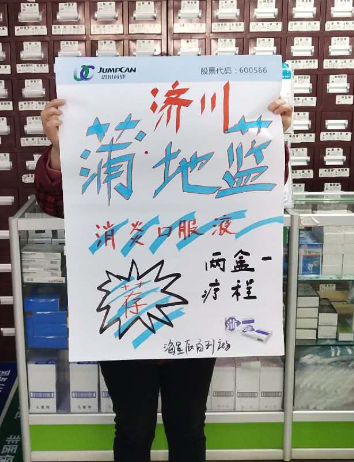 JUMPCAN
济川药业
股票代码：600566
济川
蒲地蓝
消炎口服液
两盒一
疗程
荐